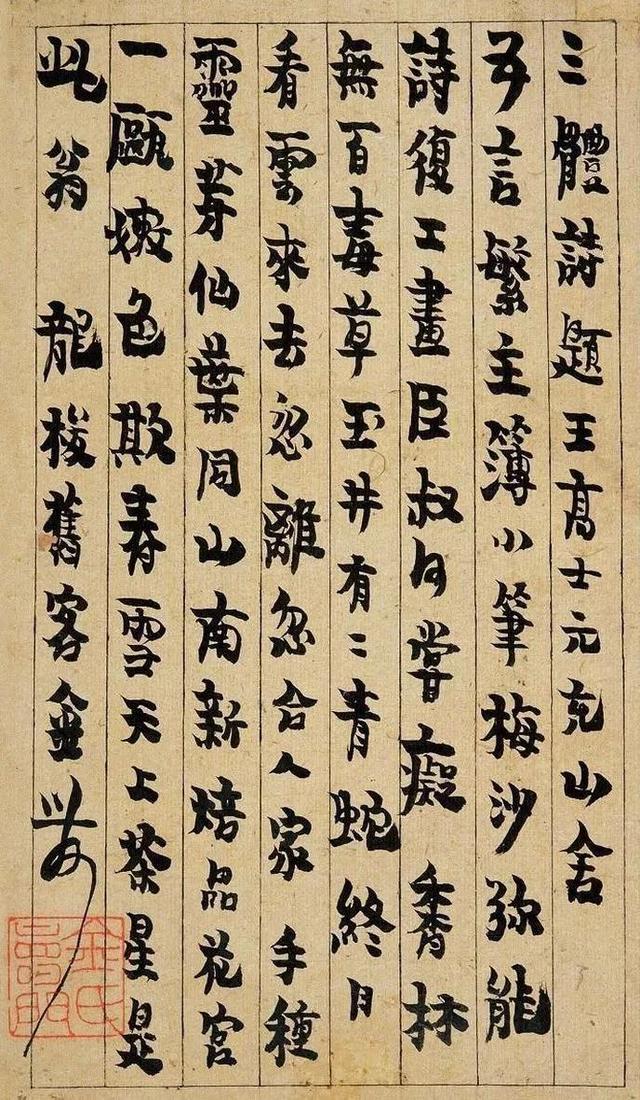 三體詩題王高士元充山舍
五言繁主簿小筆梅沙弥能
詩復工畫臣叔何嘗癡 林
無百毒草玉井有二青蛇終日
看雲來去忽離忽合人家 手種
靈芽仙葉同山南新焙品花宮
一甌嫩色欺春雪天上茶星是
此翁 龍梭舊客金農
金氏壽門